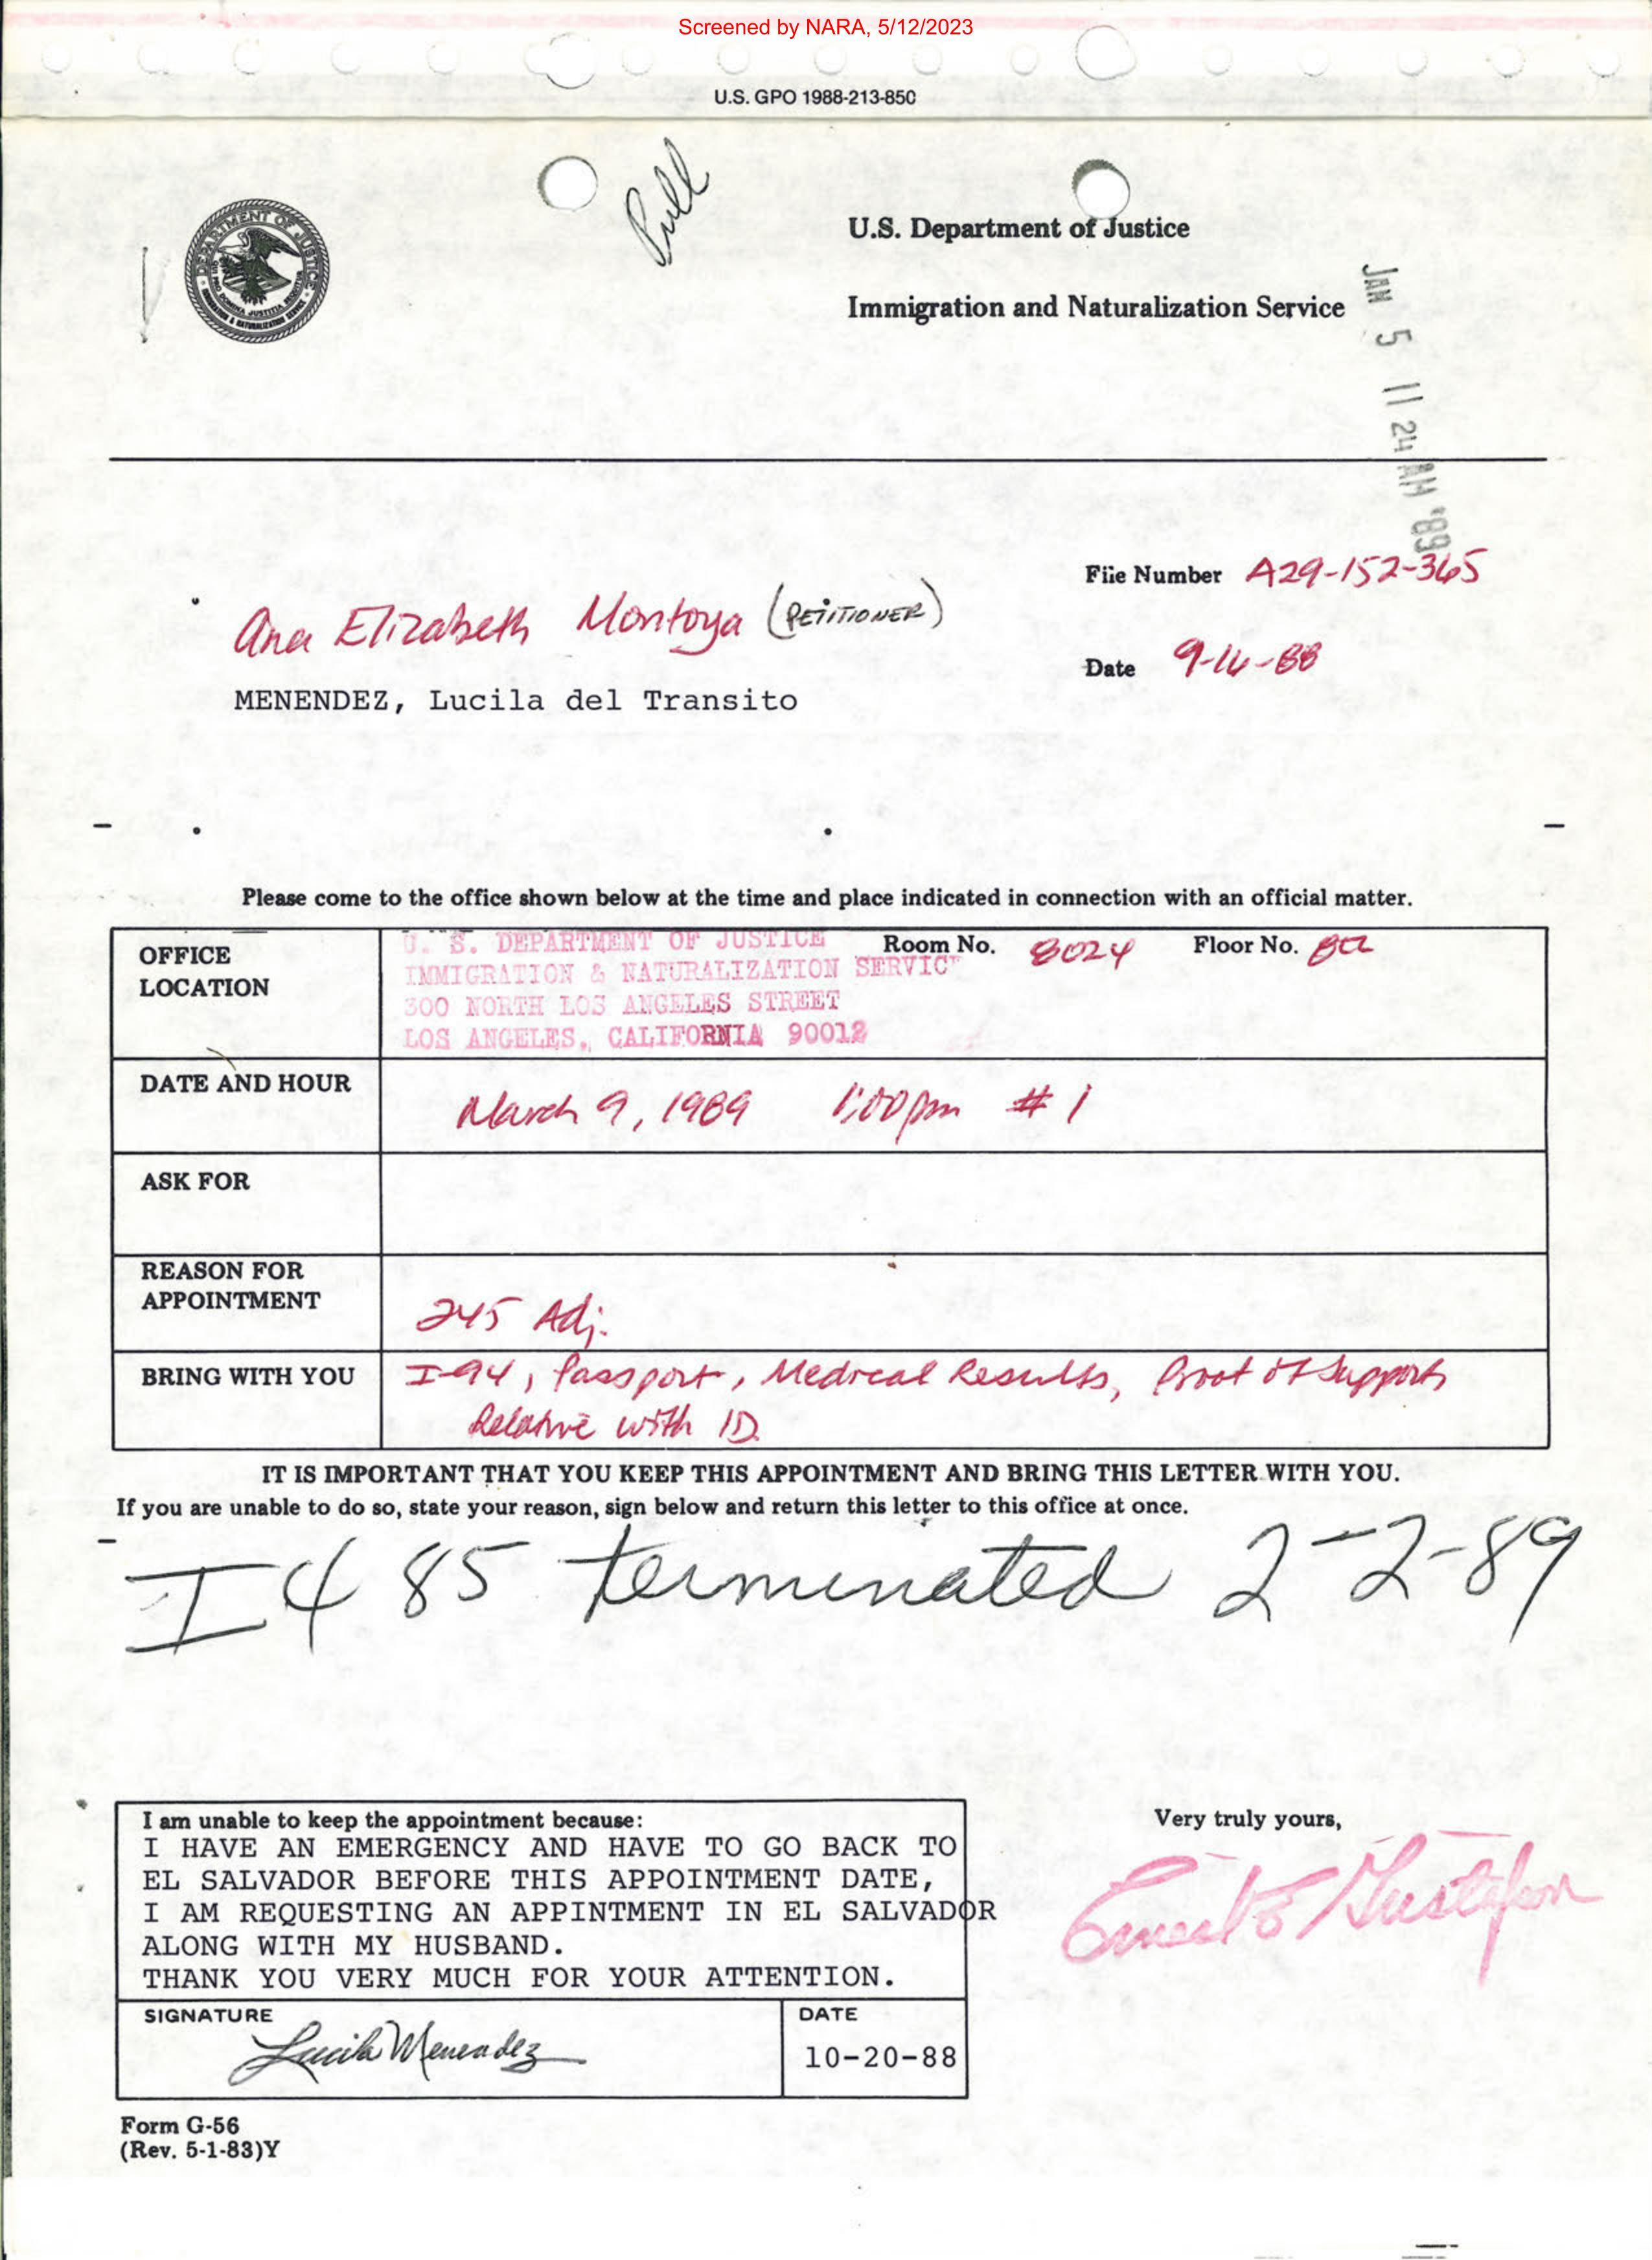 Screened by NARA, 5/12/2023
U.S. GPO 1988-213-850
Pull
U.S. Department of Justice
Immigration and Naturalization Service
JAN 5 11 24 AM '89
DEPARTMENT OF JUSTICE
File Number A29-152-365
Ana Elizabeth Montoya (PETITIONER)
Date 9-16-88
MENENDEZ, Lucila del Transito
Please come to the office shown below at the time and place indicated in connection with an official matter.
OFFICE LOCATION
U. S. DEPARTMENT OF JUSTICE Room No. 8024 Floor No. 8th
IMMIGRATION & NATURALIZATION SERVIC
300 NORTH LOS ANGELES STREET
LOS ANGELES, CALIFORNIA 90012
DATE AND HOUR March 9, 1989 1:00pm #1
ASK FOR
REASON FOR
APPOINTMENT 245 Adj.
BRING WITH YOU I-94, Passport, Medical Results, Proof of Support
Relative with ID.
IT IS IMPORTANT THAT YOU KEEP THIS APPOINTMENT AND BRING THIS LETTER WITH YOU.
If you are unable to do so, state your reason, sign below and return this letter to this office at once.
I 485 terminated 2-2-89
I am unable to keep the appointment because:
I HAVE AN EMERGENCY AND HAVE TO GO BACK TO
EL SALVADOR BEFORE THIS APPOINTMENT DATE,
I AM REQUESTING AN APPINTMENT IN EL SALVADOR
ALONG WITH MY HUSBAND.
THANK YOU VERY MUCH FOR YOUR ATTENTION.
Very truly yours,
Ernest E Gustafson
SIGNATURE DATE
Lucila Menendez 10-20-88
Form G-56
(Rev. 5-1-83)Y